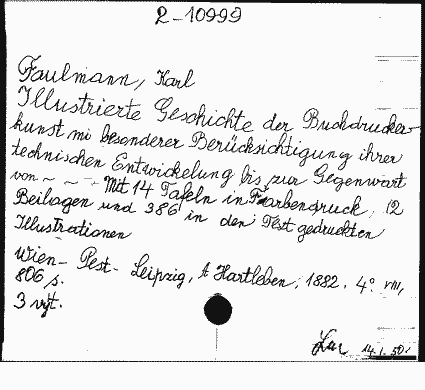 2-10999
Faulmann, Karl
Illustrierte Geschichte der Buchdrucker-
kunst mi besonderer Berücksichtigung ihrer
technischen Entwickelung bis zur Gegenwart
von ~ ~ - Mit 14 Tafeln in Farbendruck, 12
Beilagen und 386 in den Text gedruckten
Illustrationen
Wien - Pest - Leipzig, A Hartleben, 1882. 4° VIII,
806 s.
3 vyt.
14.1.50.